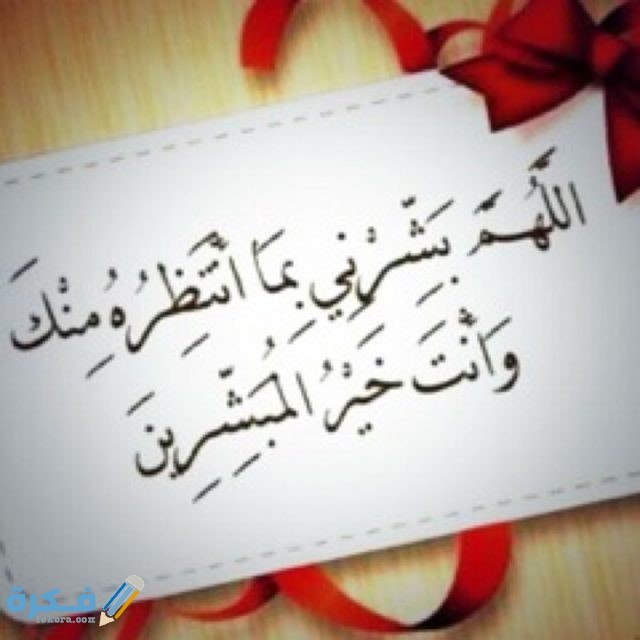 اللَّهُمَّ بَشِّرْنِي بِمَا أَنْتَظِرُهُ مِنْكَ
وَأَنْتَ خَيْرُ الْمُبَشِّرِينَ
فكرة